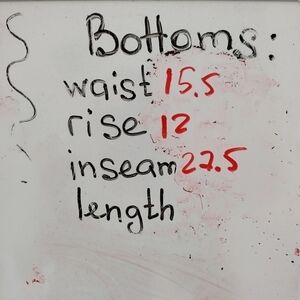 Bottoms:
waist 15.5
rise 12
inseam 27.5
length